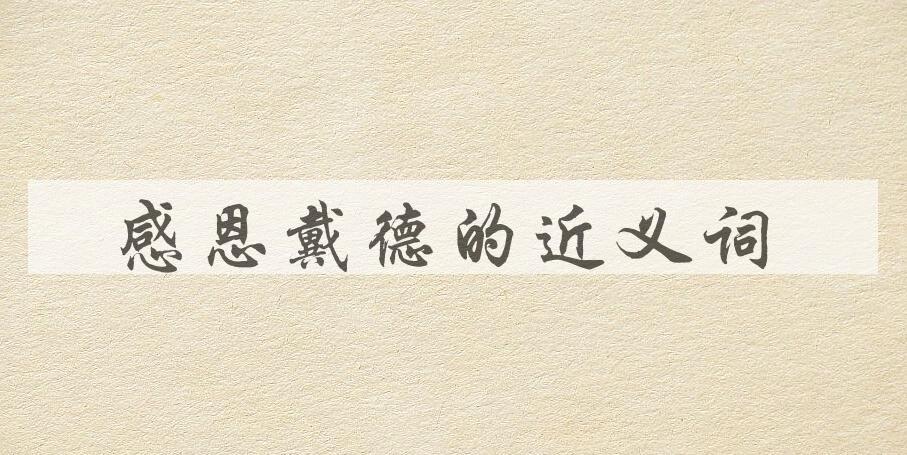 感恩戴德的近义词